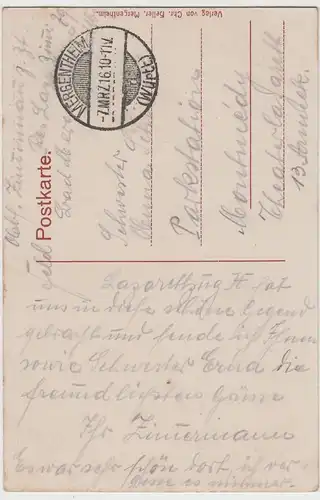 Verlag von Chr. Heller, Mergentheim.
MERGENTHEIM
-7.MRZ.16.10-11V.
Feldpostkarte.
Schwester
Parkstation
Montmédy
13. Armeek.
Lazarettzug H hat
uns in diese schöne Gegend
gebracht und sende ich Ihnen
sowie Schwester Erna die
freundlichsten Grüsse
Ihr Zimmermann
Es war sehr schön dort, ich ver-
gesse es nimmer.